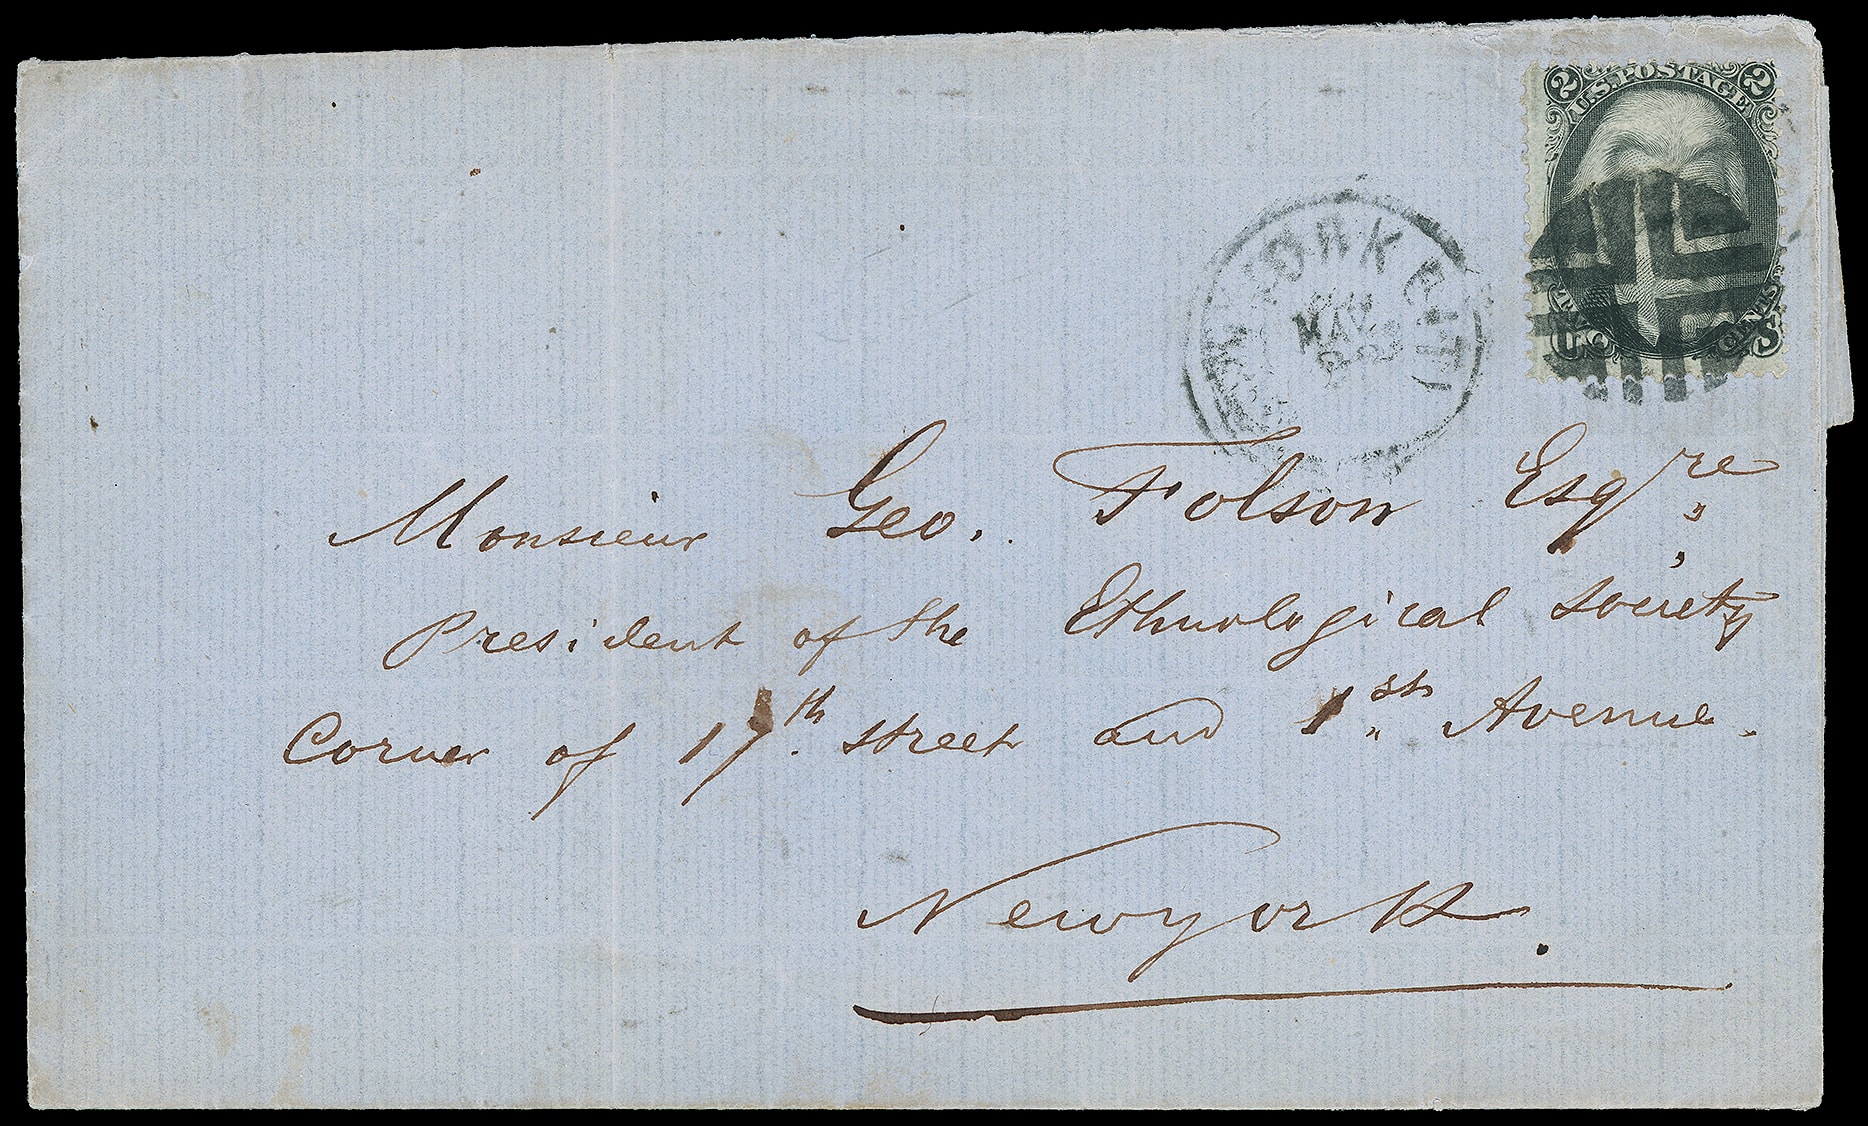 2 U.S. POSTAGE 2
NEW YORK CITY
MAY
U S
CENTS
Monsieur Geo. Folsom Esqre,
President of the Ethnological Society
Corner of 17th. Street and 1st. Avenue.
Newyork.